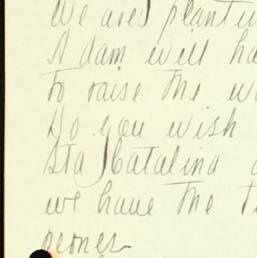 We are planti
Adam will ha
to raise the w
Do you wish
Sta Catalina
we have the t